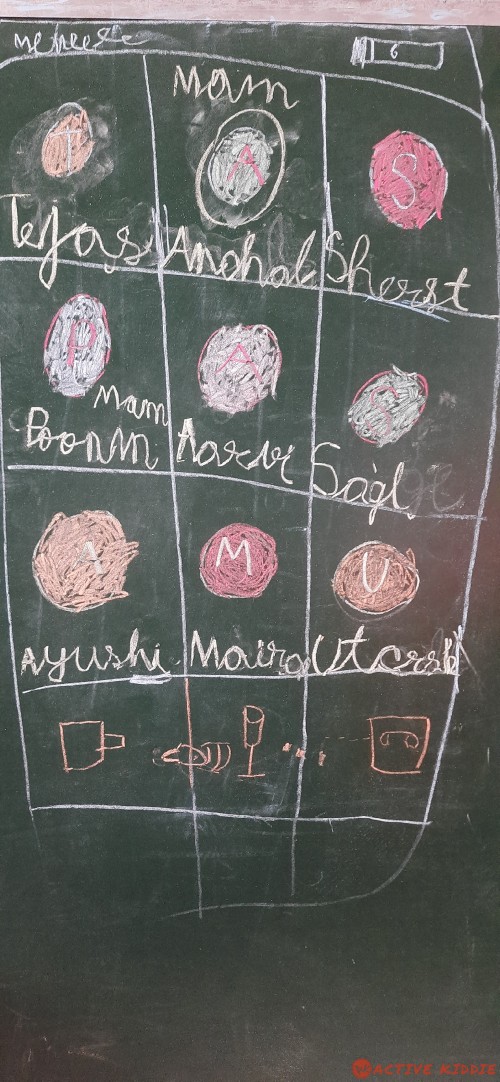 6
Mam
T A S
Tejas Anohal Sherst
P A
Mam
Poonm Aarvr Sagl
A M U
Ayushi Maira Utcrsh
ACTIVE KIDDIE